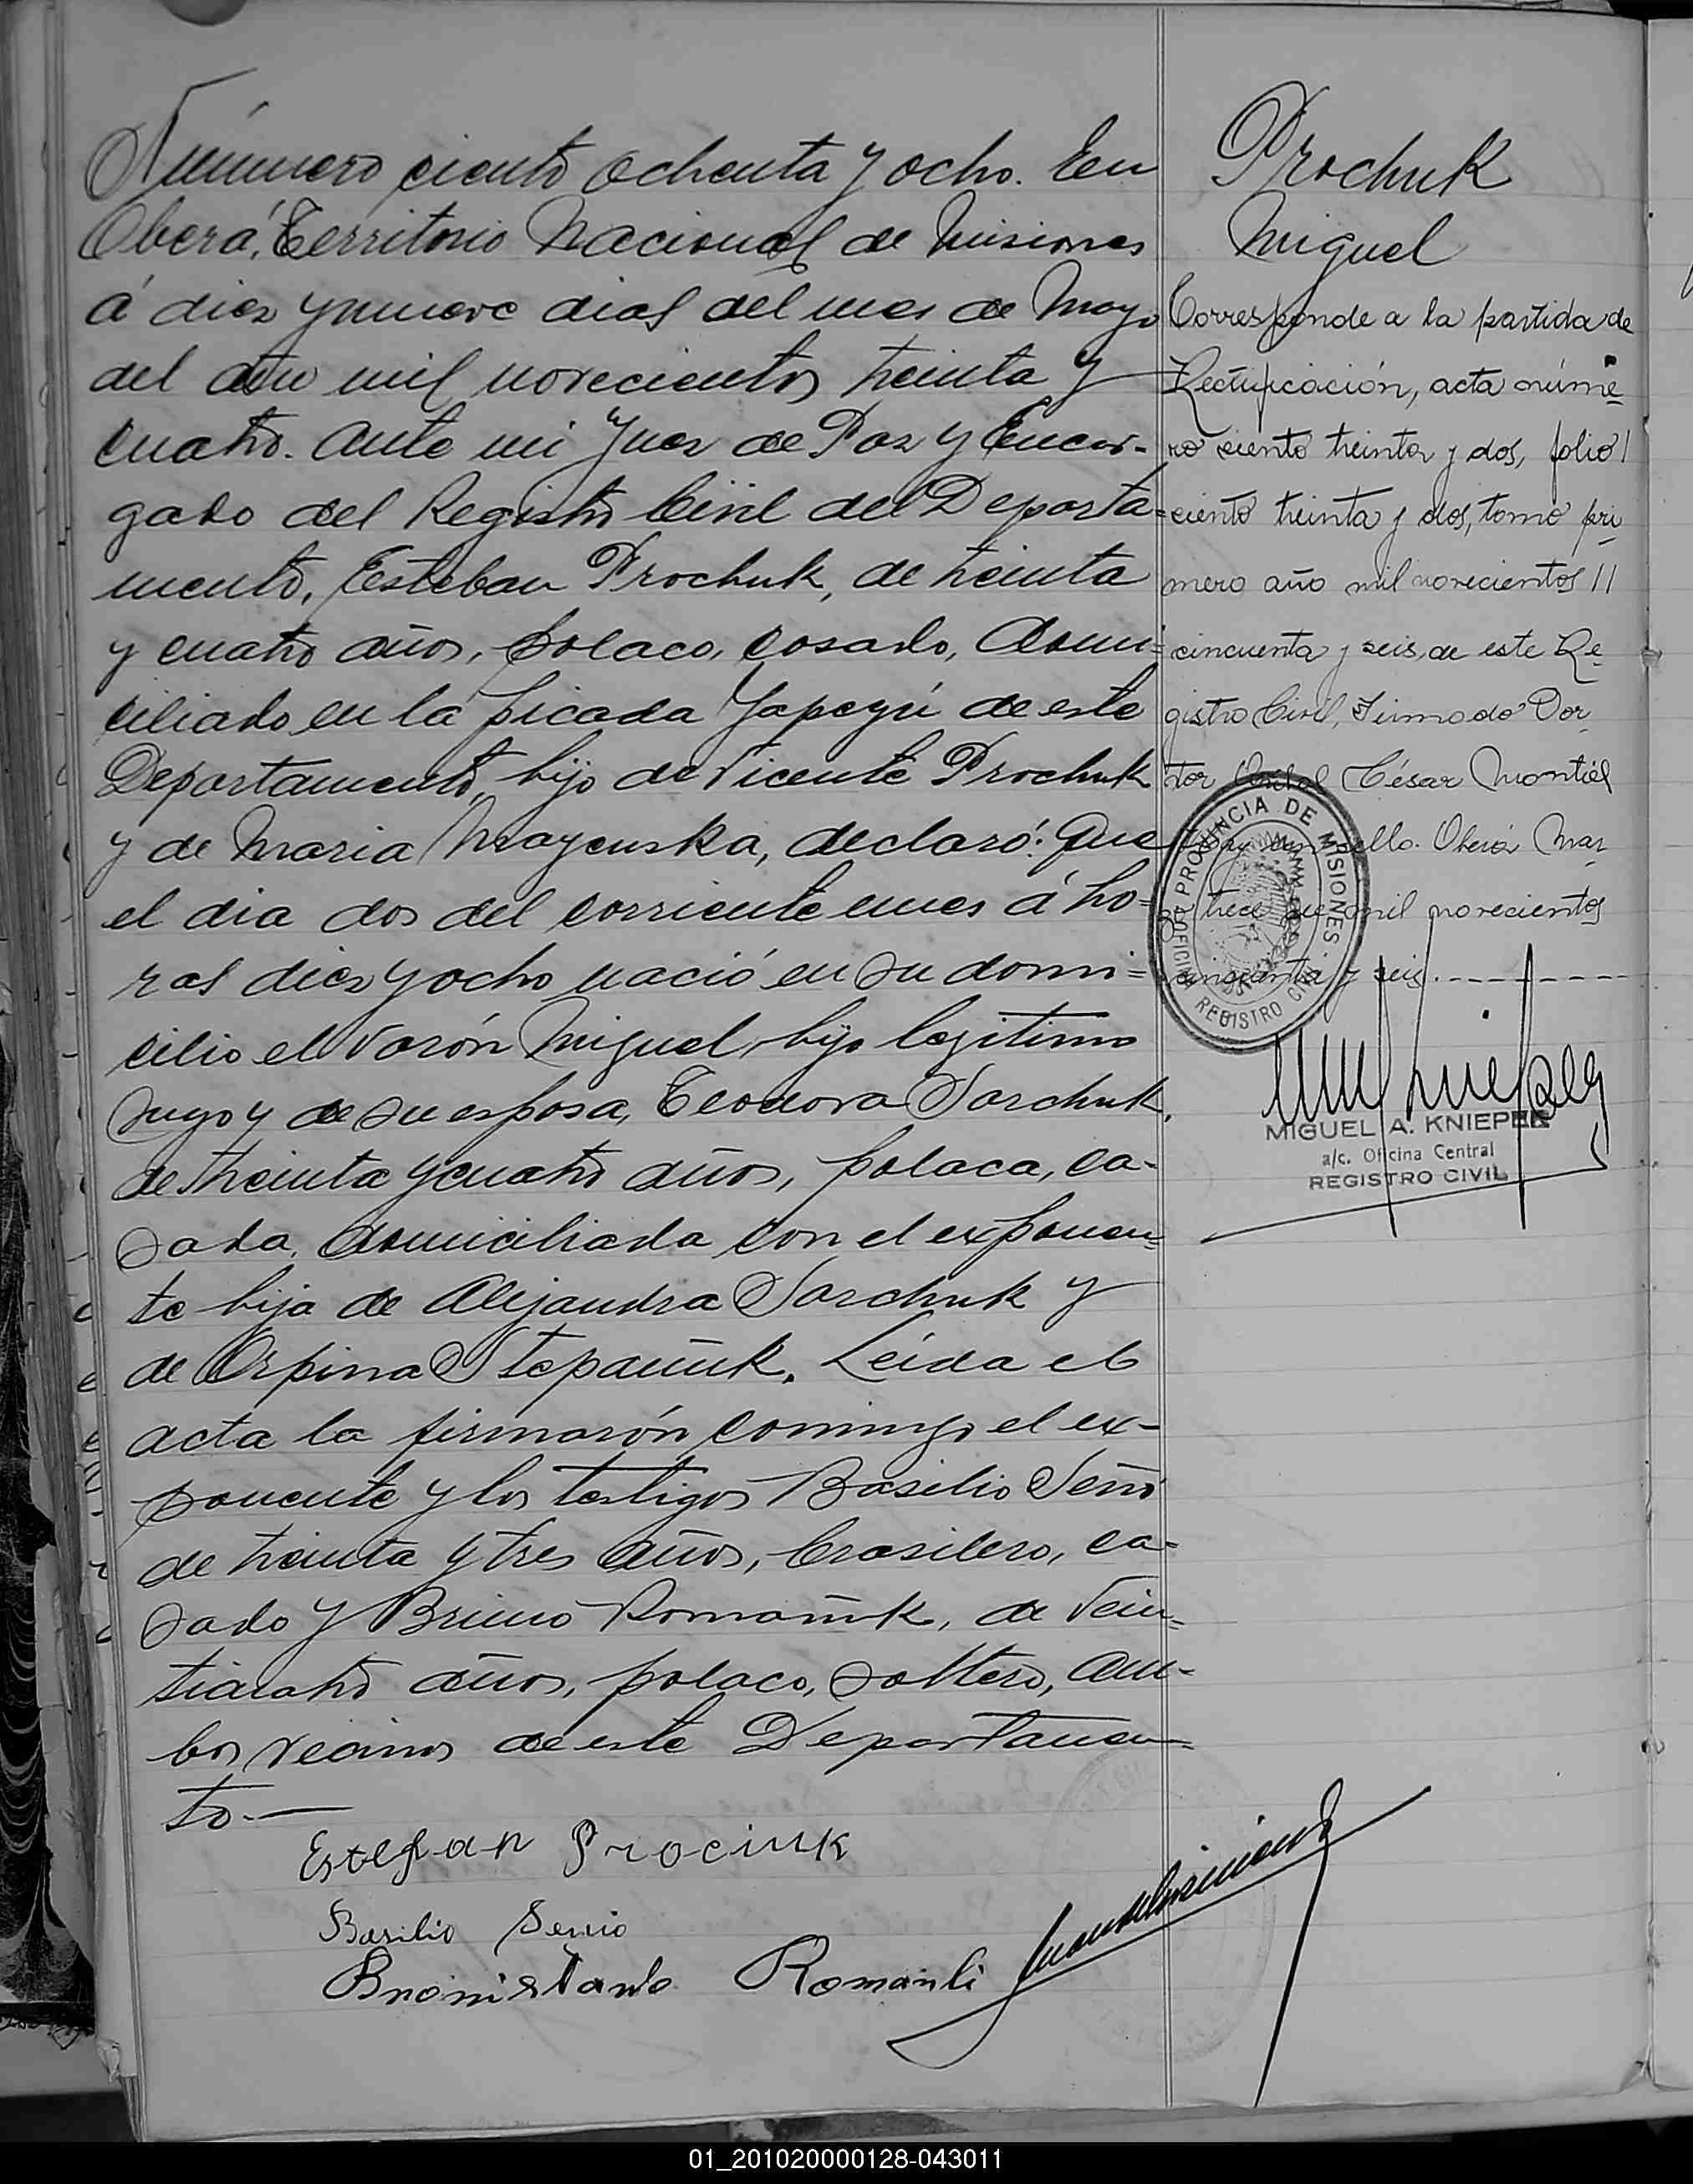 Número ciento ochenta y ocho. En
Oberá, Territorio Nacional de Misiones
á diez y nueve dias del mes de Mayo
del año mil novecientos treinta y
cuatro. Ante mi Juez de Paz y Encar-
gado del Registro Civil del Departa=
mento, Esteban Prochuk, de treinta
y cuatro años, polaco, casado, domi=
ciliado en la picada Yapeyú de este
Departamento, hijo de Vicente Prochuk
y de Maria Mayenska, declaró: Que
el dia dos del corriente mes á ho-
ras diez y ocho nació en su domi=
cilio el varón Miguel, hijo legitimo
suyo y de su esposa, Teodora Sarchuk,
de treinta y cuatro años, polaca, ca-
sada, domiciliada con el exponen=
te hija de Alejandra Sarchuk y
de Orpina Stepañuk. Leida el
acta la firmarón conmigo el ex-
ponente y los testigos Basilio Señó
de treinta y tres años, brasilero, ca-
sado y Bruno Romañuk, de vein=
ticuatro años, polaco, soltero, am-
bos vecinos de este Departamen=
to.—
Estefan Prociuk
Basilio Senio
Bronistavo Romanli
Prochuk
Miguel
Corresponde a la partida de
Rectificación, acta núme-
ro ciento treinta y dos, folio /
ciento treinta y dos, tomo pri-
mero año mil novecientos //
cincuenta y seis, de este Re-
gistro Civil, Firmado Doc-
tor César Montiel
Hay un sello. Oberá Mar-
zo trece de mil novecientos
cincuenta y seis.----------
PROVINCIA DE MISIONES
OFICINA REGISTRO CIVIL
MIGUEL A. KNIEPER
a/c. Oficina Central
REGISTRO CIVIL
01_201020000128-043011